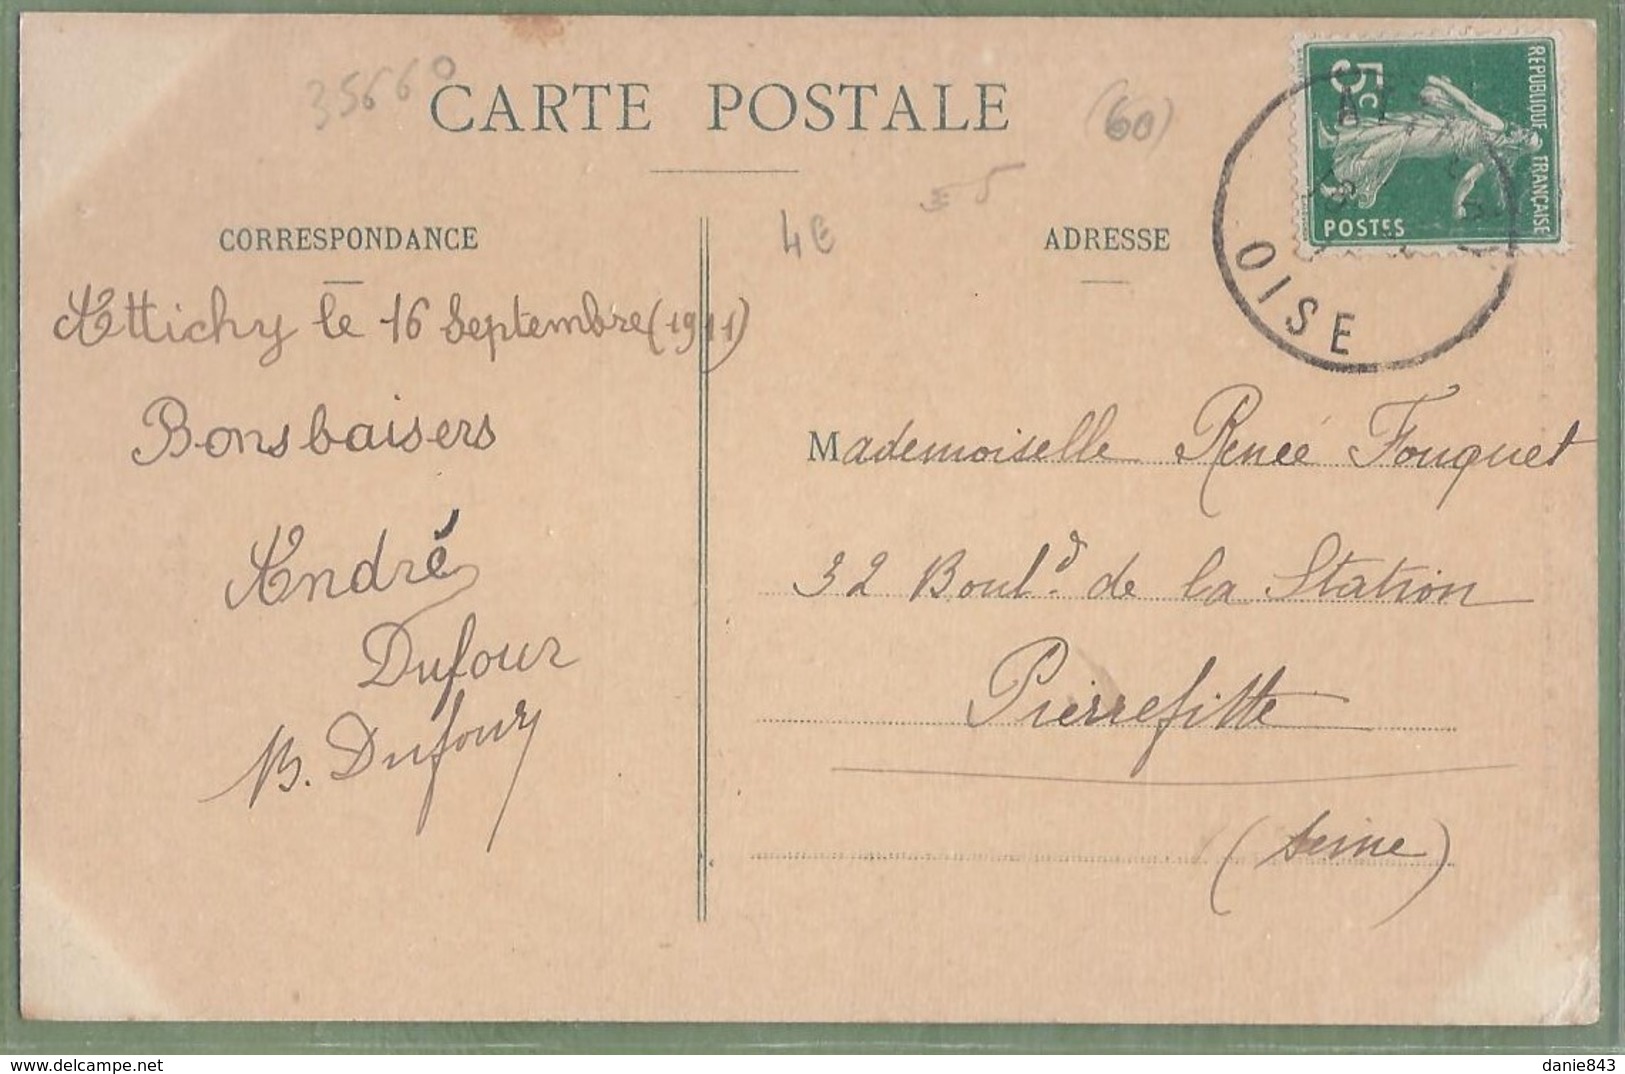 35660
CARTE POSTALE
(60)
4€
CORRESPONDANCE
ADRESSE
REPUBLIQUE FRANÇAISE
5c
POSTES
OISE
Attichy le 16 Septembre (1911)
Bons baisers
André
Dufour
B. Dufour
Mademoiselle Renée Fouquet
32 Boul.d de la Station
Pierrefitte
(Seine)
danie843